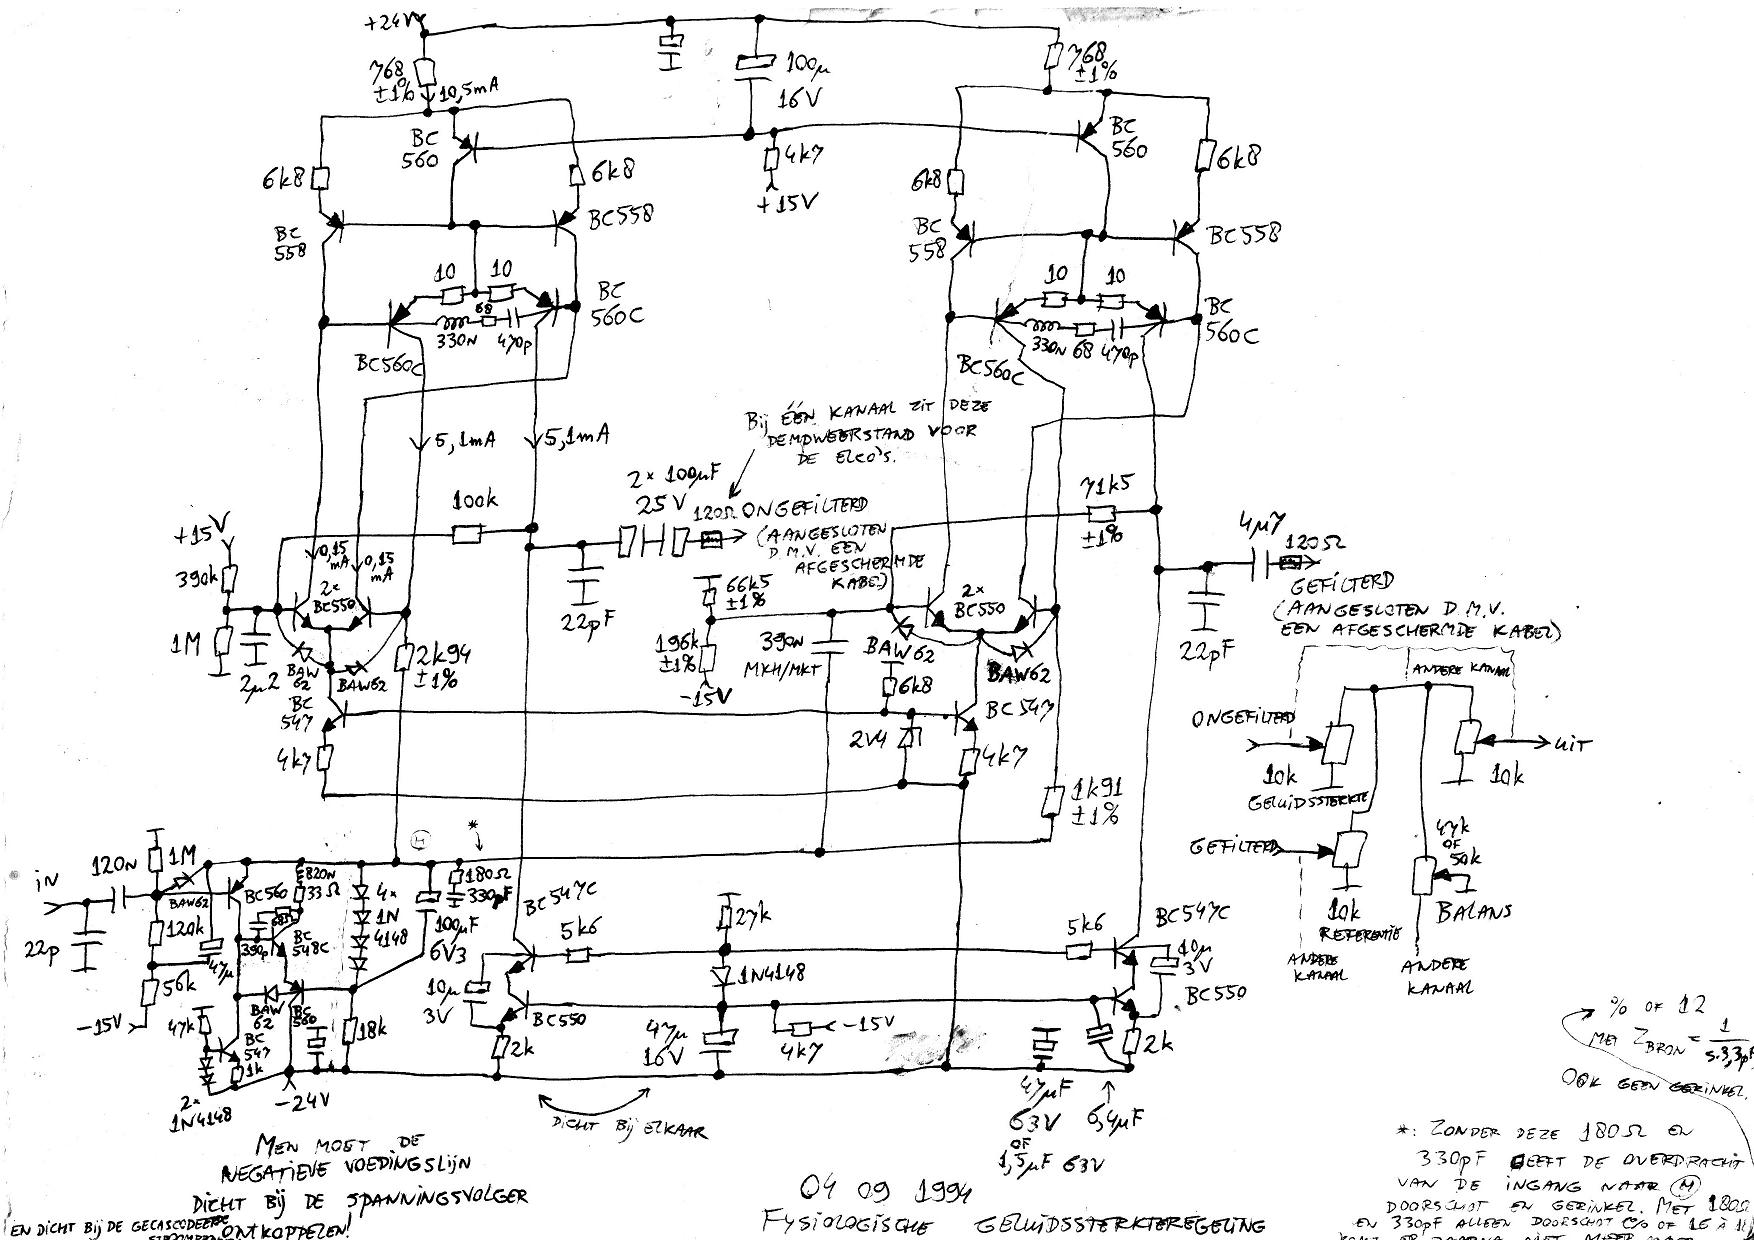 +24V
768
±1%
10,5mA
100µ
16V
768
±1%
BC
560
6k8
6k8
4k7
+15V
BC
560
6k8
6k8
BC
558
BC558
BC
558
BC558
10
10
68
330n
470p
BC
560C
BC560C
10
10
330n
68
470p
BC
560C
BC560C
5,1mA
5,1mA
Bij ÉÉN KANAAL ZIT DEZE
DEMPWEERSTAND VOOR
DE ELCO'S.
100k
2× 100µF
25V
120Ω
ONGEFILTERD
(AANGESLOTEN
D.M.V. EEN
AFGESCHERMDE
KABEL)
71k5
±1%
4µ7
120Ω
GEFILTERD
(AANGESLOTEN D.M.V.
EEN AFGESCHERMDE KABEL)
+15V
390k
0,15
mA
0,15
mA
2×
BC550
1M
2µ2
BAW
62
BAW62
2k94
±1%
22pF
66k5
±1%
196k
±1%
-15V
390n
MKH/MKT
2×
BC550
BAW62
BAW62
6k8
22pF
BC
547
4k7
BC547
2V4
4k7
1k91
±1%
ANDERE KANAAL
ONGEFILTERD
10k
GELUIDSSTERKTE
UIT
10k
GEFILTERD
10k
REFERENTIE
ANDERE
KANAAL
47k
OF
50k
BALANS
ANDERE
KANAAL
in
120n
1M
22p
BAW62
BC560
820n
33Ω
120k
47µ
390p
BC
548C
4×
1N
4148
M
*
180Ω
330pF
100µF
6V3
56k
-15V
47k
BAW
62
BC
560
BC
547
1k
18k
2×
1N4148
-24V
BC547C
5k6
10µ
3V
BC550
2k
27k
1N4148
47µ
16V
4k7
-15V
5k6
BC547C
10µ
3V
BC550
2k
47µF
63V
OF
1,5µF 63V
6,4µF
DICHT Bij ELKAAR
MEN MOET DE
NEGATIEVE VOEDINGSLIJN
DICHT BIJ DE SPANNINGSVOLGER
EN DICHT BIJ DE GECASCODEERDE
ONTKOPPELEN!
04 09 1994
FYSIOLOGISCHE GELUIDSSTERKTEREGELING
% OF 12
MET Z BRON = 1
s.3,3pF
OOK GEEN GERINKEL.
*: ZONDER DEZE 180Ω EN
330pF GEEFT DE OVERDRACHT
VAN DE INGANG NAAR M
DOORSCHOT EN GERINKEL. MET 180Ω
EN 330pF ALLEEN DOORSCHOT (% OF 16 À